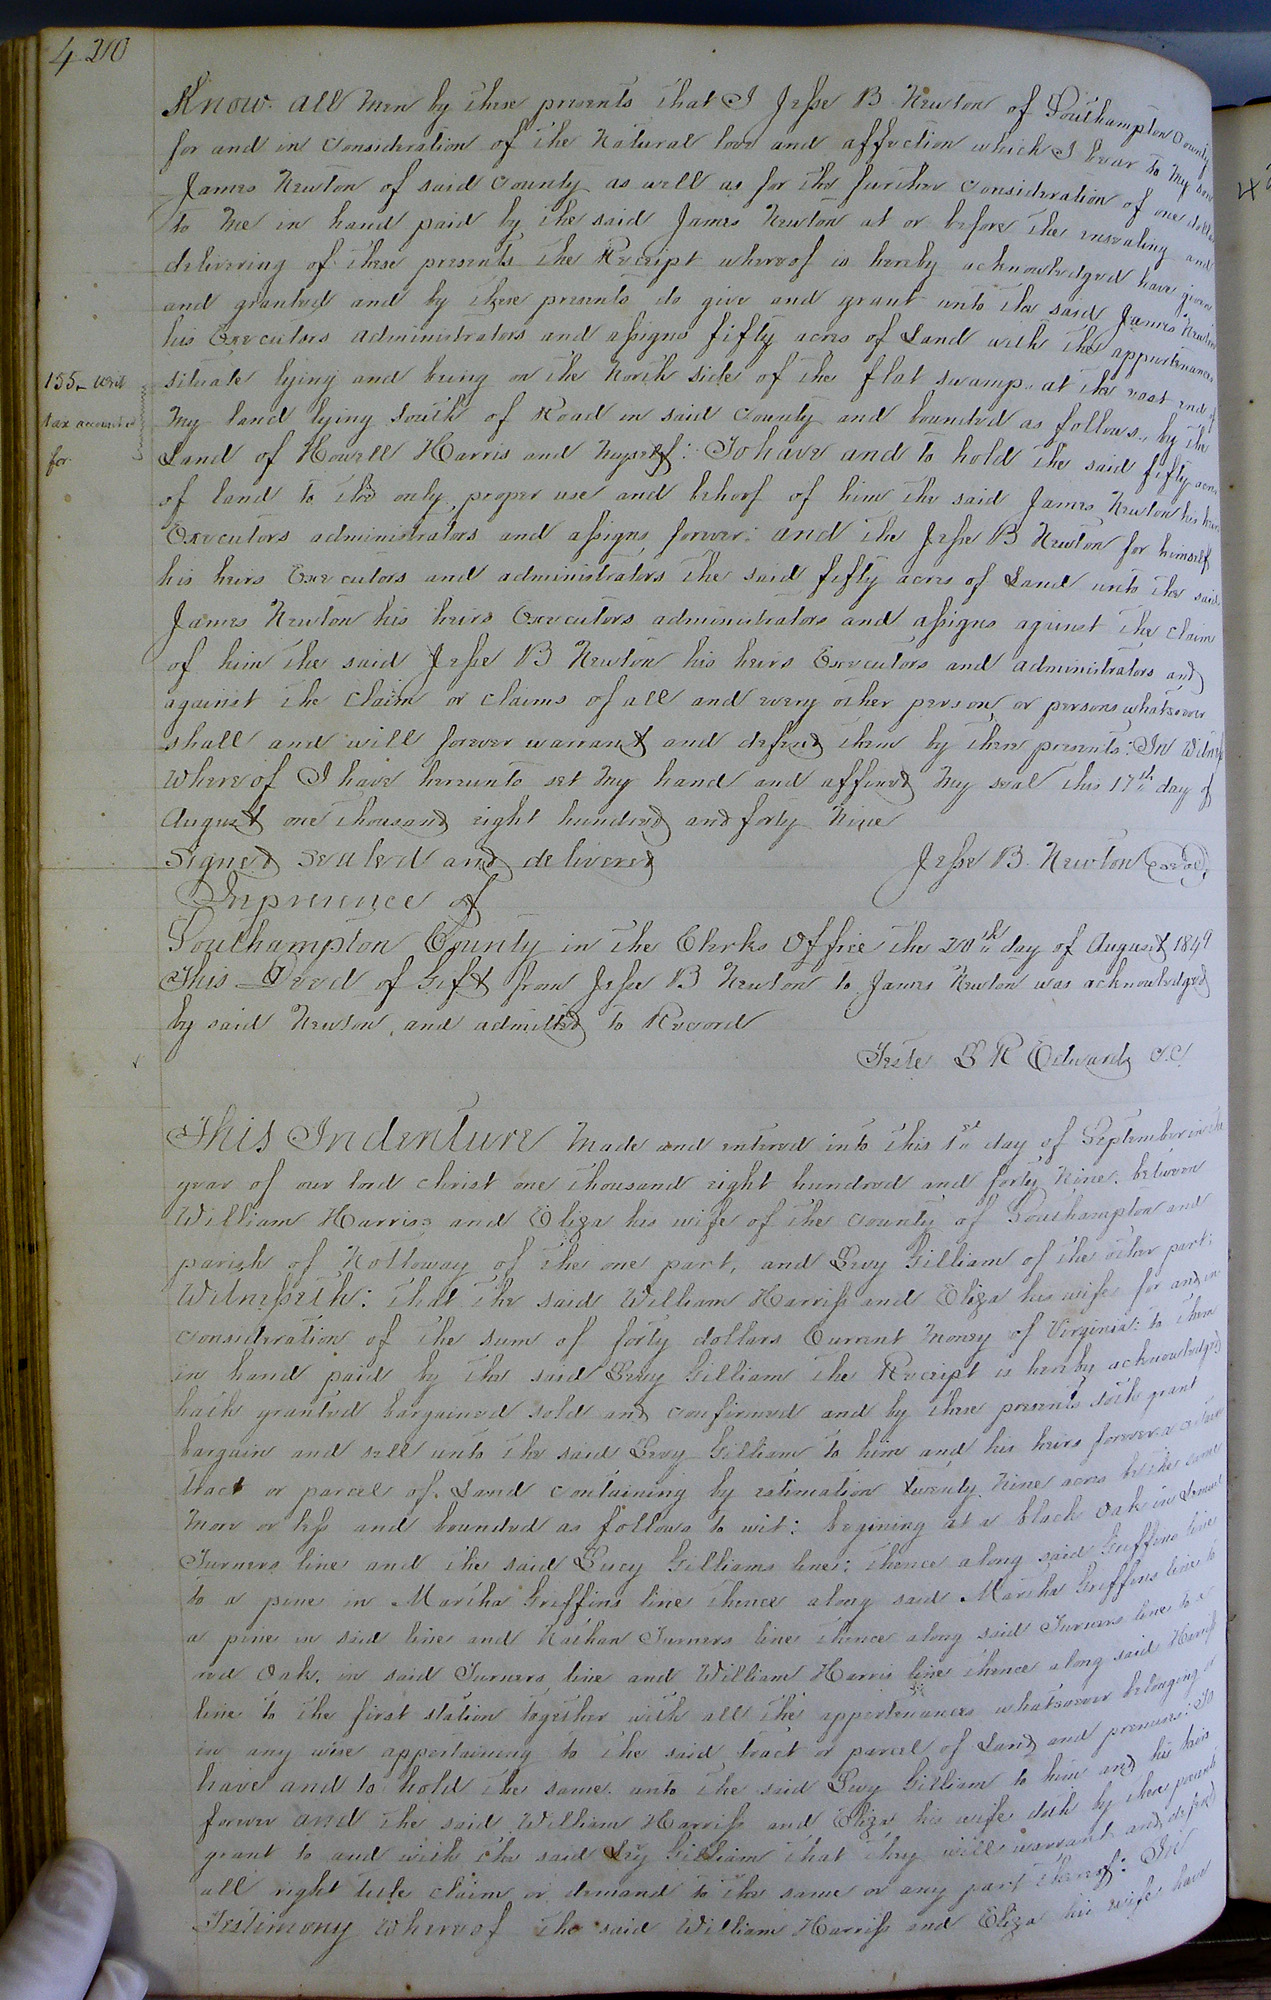 420
Know all Men by these presents that I Jesse B Newton of Southampton County
for and in consideration of the Natural love and affection which I bear to My son
James Newton of said County as well as for the further consideration of one dollar
to Me in hand paid by the said James Newton at or before the ensealing and
delivering of these presents the Receipt whereof is hereby acknowledged have given
and granted and by these presents do give and grant unto the said James Newton
his Executors administrators and assigns fifty acres of Land with the appurtenances
situate lying and being on the North side of the flat swamp at the east end of
My land lying South of Road in said County and bounded as follows, by the
Land of Howell Harris and Myself: To have and to hold the said fifty acres
of land to the only proper use and behoof of him the said James Newton his heirs
Executors administrators and assigns forever: and the Jesse B Newton for himself
his heirs Executors and administrators the said fifty acres of Land unto the said
James Newton his heirs Executors administrators and assigns against the claim
of him the said Jesse B Newton his heirs Executors and administrators and
against the claim or claims of all and every other person or persons whatsoever
shall and will forever warrant and defend them by these presents: In Witness
Whereof I have hereunto set My hand and affixed My seal this 17th day of
August one thousand eight hundred and forty Nine
Signed Sealed and delivered Jesse B. Newton Seal
In presence of
Southampton County in the Clerks Office the 20th day of August 1849
This Deed of Gift from Jesse B Newton to James Newton was acknowledged
by said Newton, and admitted to Record
Teste L R Edwards C.C.
155- Writ
tax accounted
for
This Indenture Made and entered into this 1st day of September in the
year of our lord Christ one thousand eight hundred and forty Nine, between
William Harriss and Eliza his wife of the County of Southampton and
parish of Nottoway of the one part, and Levy Gilliam of the other part:
Witnesseth: that the said William Harriss and Eliza his wife for and in
consideration of the sum of forty dollars Current Money of Virginia: to them
in hand paid by the said Levy Gilliam the Receipt is hereby acknowledged
hath granted bargained sold and confirmed and by these presents doth grant
bargain and sell unto the said Levy Gilliam to him and his heirs forever a certain
tract or parcel of Land containing by estimation twenty Nine acres be the same
More or less and bounded as follows to wit: begining at a black Oak in
Turners line and the said Levy Gilliams line: thence along said Griffins line
to a pine in Martha Griffins line thence along said Martha Griffins line to
a pine in said line and Nathan Turners line thence along said Turners line to a
red Oak, in said Turners line and William Harris line thence along said Harriss
line to the first station together with all the appertenances whatsoever belonging or
in any wise appertaining to the said tract or parcel of Land and premises: To
have and to hold the same unto the said Levy Gilliam to him and his heirs
forever and the said William Harriss and Eliza his wife doth by these presents
grant to and with the said Levy Gilliam that they will warrant and defend
all right title claim or demand to the same or any part thereof: In
Testimony Whereof the said William Harriss and Eliza his wife have